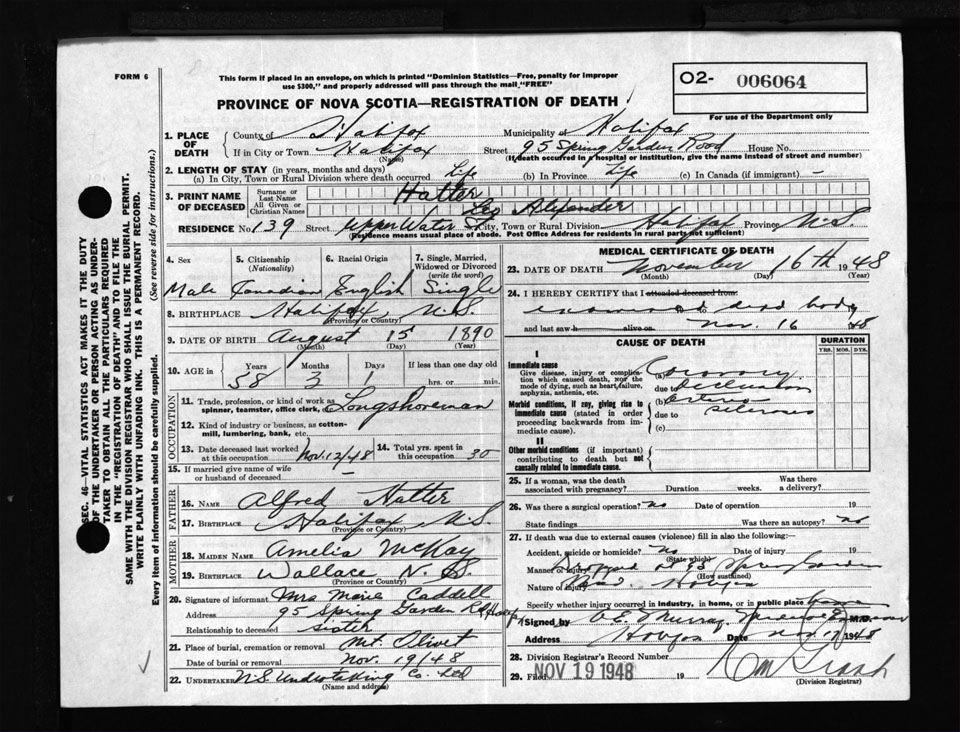 FORM 6
This form if placed in an envelope, on which is printed "Dominion Statistics—Free, penalty for improper
use $300," and properly addressed will pass through the mail "FREE"
O2- 006064
PROVINCE OF NOVA SCOTIA—REGISTRATION OF DEATH
For use of the Department only
1. PLACE OF DEATH
County of Halifax Municipality of Halifax
If in City or Town Halifax Street 95 Spring Garden Road House No.
(Name) (If death occurred in a hospital or institution, give the name instead of street and number)
2. LENGTH OF STAY (in years, months and days)
(a) In City, Town or Rural Division where death occurred Life (b) In Province Life (c) In Canada (if immigrant) -
3. PRINT NAME OF DECEASED
Surname or Last Name Hatter
All Given or Christian Names Leo Alexander
RESIDENCE No. 139 Street Upper Water St City, Town or Rural Division Halifax Province N.S.
(Residence means usual place of abode. Post Office Address for residents in rural parts not sufficient)
4. Sex
Male
5. Citizenship (Nationality)
Canadian
6. Racial Origin
English
7. Single, Married, Widowed or Divorced (write the word)
Single
8. BIRTHPLACE Halifax, N.S.
(Province or Country)
9. DATE OF BIRTH August 15 1890
(Month) (Day) (Year)
10. AGE in Years Months Days If less than one day old
58 3 1 hrs. or min.
OCCUPATION
11. Trade, profession, or kind of work as spinner, teamster, office clerk, etc. Longshoreman
12. Kind of industry or business, as cotton-mill, lumbering, bank, etc.
13. Date deceased last worked at this occupation Nov. 12/48
14. Total yrs. spent in this occupation 30
15. If married give name of wife or husband of deceased -
FATHER
16. NAME Alfred Hatter
17. BIRTHPLACE Halifax, N.S.
(Province or Country)
MOTHER
18. MAIDEN NAME Amelia McKay
19. BIRTHPLACE Wallace N. S.
(Province or Country)
20. Signature of informant Mrs Marie Caddell
Address 95 Spring Garden Rd, Halifax
Relationship to deceased sister
21. Place of burial, cremation or removal Mt. Olivet
Date of burial or removal Nov. 19/48
22. UNDERTAKER N.S. Undertaking Co. Ltd
(Name and address)
MEDICAL CERTIFICATE OF DEATH
23. DATE OF DEATH November 16th 1948
(Month) (Day) (Year)
24. I HEREBY CERTIFY that I attended deceased from:
examined dead body
and last saw h alive on Nov. 16 1948
CAUSE OF DEATH
DURATION
YRS. MOS. DYS.
I
Immediate cause
Give disease, injury or complication which caused death, not the mode of dying, such as heart failure, asphyxia, asthenia, etc.
(a) Coronary
due to Occlusion
Morbid conditions, if any, giving rise to immediate cause (stated in order proceeding backwards from immediate cause).
(b) Arterio
due to sclerosis
(c)
II
Other morbid conditions (if important) contributing to death but not causally related to immediate cause.
25. If a woman, was the death associated with pregnancy? Duration weeks. Was there a delivery?
26. Was there a surgical operation? no Date of operation 19
State findings Was there an autopsy? no
27. If death was due to external causes (violence) fill in also the following:
Accident, suicide or homicide? no Date of injury 19
(State which)
Manner of injury Dropped at 95 Spring Garden
(How sustained)
Nature of injury Road. Halifax
Specify whether injury occurred in industry, in home, or in public place home
Signed by Murray, M.D.
Address Halifax Date Nov 17 1948
28. Division Registrar's Record Number
29. Filed NOV 19 1948 19
(Division Registrar)
SEC. 46—VITAL STATISTICS ACT MAKES IT THE DUTY
OF THE UNDERTAKER OR PERSON ACTING AS UNDER-
TAKER TO OBTAIN ALL THE PARTICULARS REQUIRED
IN THE "REGISTRATION OF DEATH" AND TO FILE THE
SAME WITH THE DIVISION REGISTRAR WHO SHALL ISSUE THE BURIAL PERMIT.
WRITE PLAINLY WITH UNFADING INK. THIS IS A PERMANENT RECORD.
Every item of information should be carefully supplied. (See reverse side for instructions.)